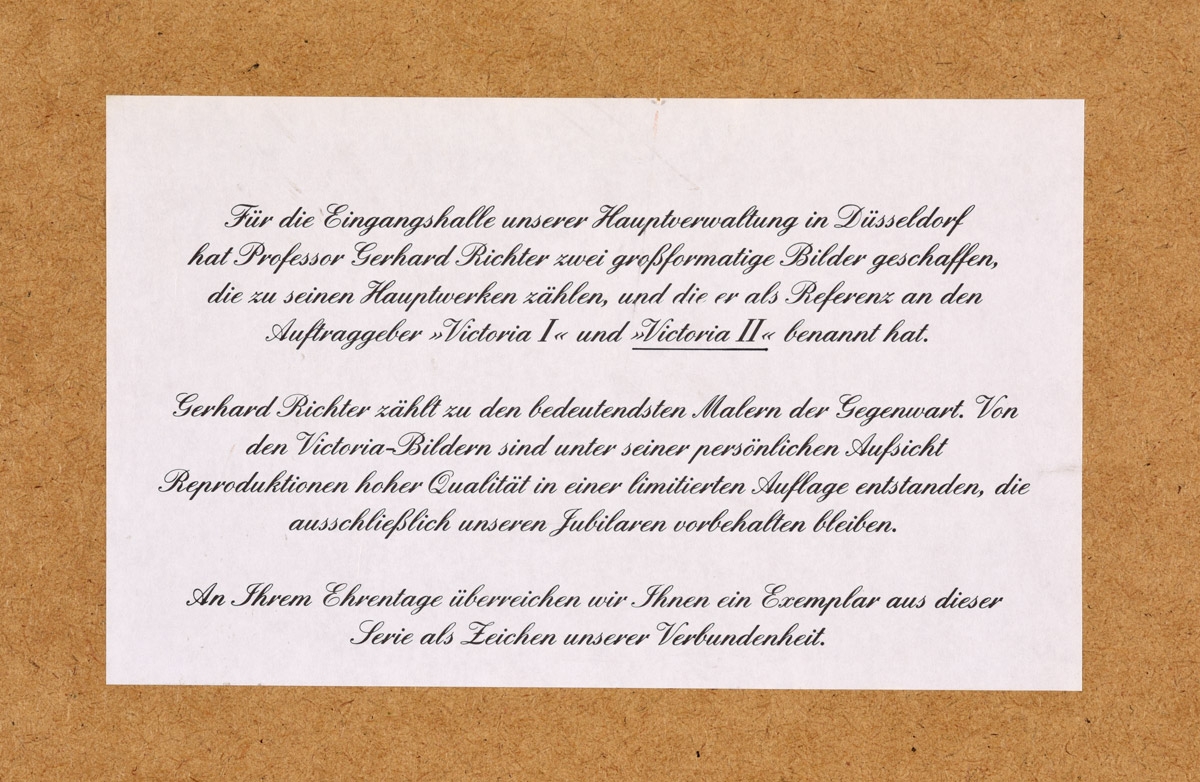 Für die Eingangshalle unserer Hauptverwaltung in Düsseldorf
hat Professor Gerhard Richter zwei großformatige Bilder geschaffen,
die zu seinen Hauptwerken zählen, und die er als Referenz an den
Auftraggeber »Victoria I« und »Victoria II« benannt hat.
Gerhard Richter zählt zu den bedeutendsten Malern der Gegenwart. Von
den Victoria-Bildern sind unter seiner persönlichen Aufsicht
Reproduktionen hoher Qualität in einer limitierten Auflage entstanden, die
ausschließlich unseren Jubilaren vorbehalten bleiben.
An Ihrem Ehrentage überreichen wir Ihnen ein Exemplar aus dieser
Serie als Zeichen unserer Verbundenheit.